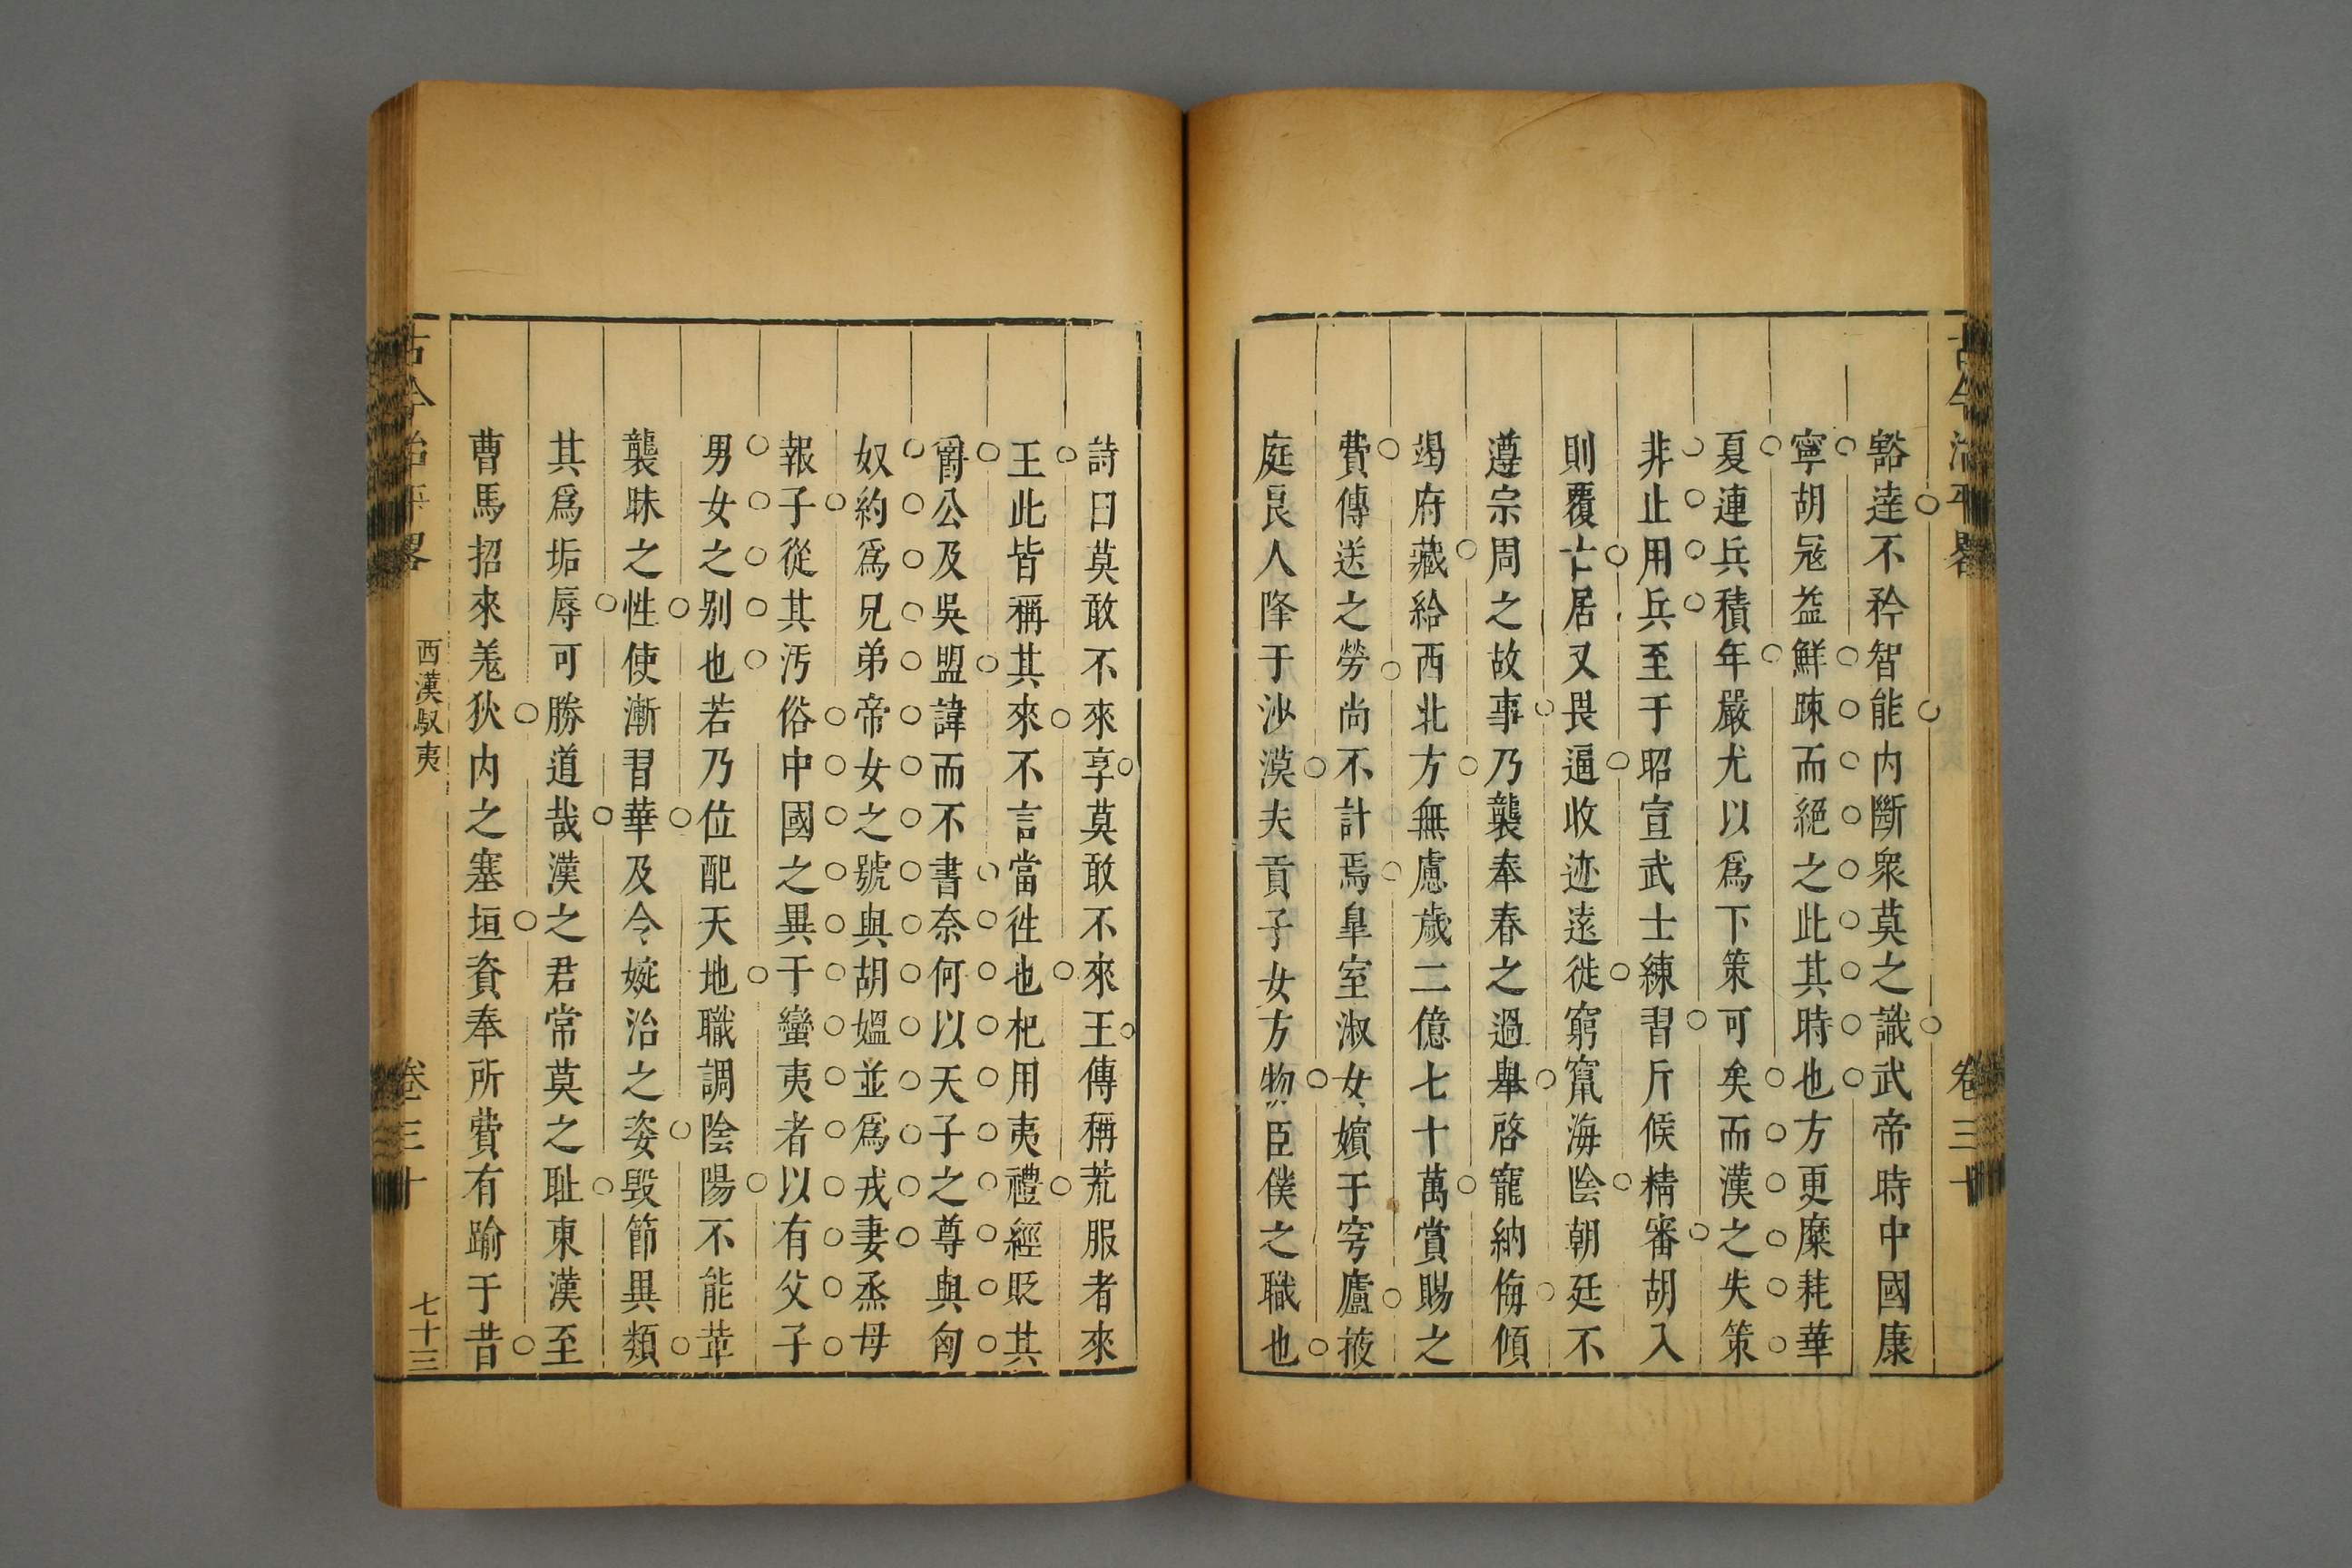 古今治平畧
卷三十
豁達不矜智能內斷衆莫之識武帝時中國康
寧胡冦益鮮踈而絕之此其時也方更糜耗華
夏連兵積年嚴尤以爲下策可矣而漢之失策
非止用兵至于昭宣武士練習斤候精審胡入
則覆亡居又畏逼收迹遠徙窮竄海陰朝廷不
遵宗周之故事乃襲奉春之過舉啓寵納侮傾
竭府藏給西北方無慮歲二億七十萬賞賜之
費傳送之勞尚不計焉皐室淑女嬪于穹廬掖
庭良人降于沙漠夫貢子女方物臣僕之職也
詩曰莫敢不來享莫敢不來王傳稱荒服者來
王此皆稱其來不言當徃也杞用夷禮經貶其
爵公及吳盟諱而不書奈何以天子之尊與匈
奴約爲兄弟帝女之號與胡媼並爲戎妻烝母
報子從其汚俗中國之異于蠻夷者以有父子
男女之别也若乃位配天地職調陰陽不能革
襲昧之性使漸習華及令婉冶之姿毀節異類
其爲垢辱可勝道哉漢之君常莫之耻東漢至
曹馬招來羌狄內之塞垣資奉所費有踰于昔
古今治平畧
西漢馭夷
卷三十
七十三